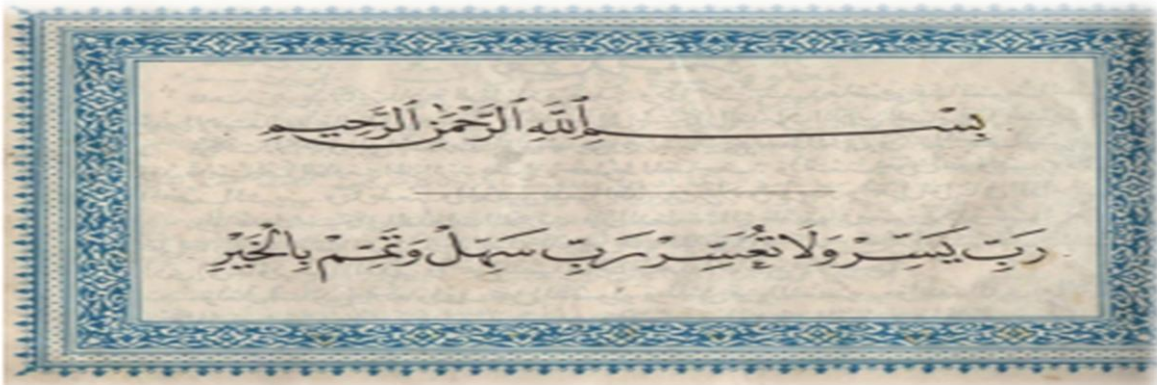 بِسْمِ ٱللَّهِ ٱلرَّحْمَٰنِ ٱلرَّحِيمِ
رَبِّ يَسِّرْ وَلَا تُعَسِّرْ رَبِّ سَهِّلْ وَتَمِّمْ بِالْخَيْرِ